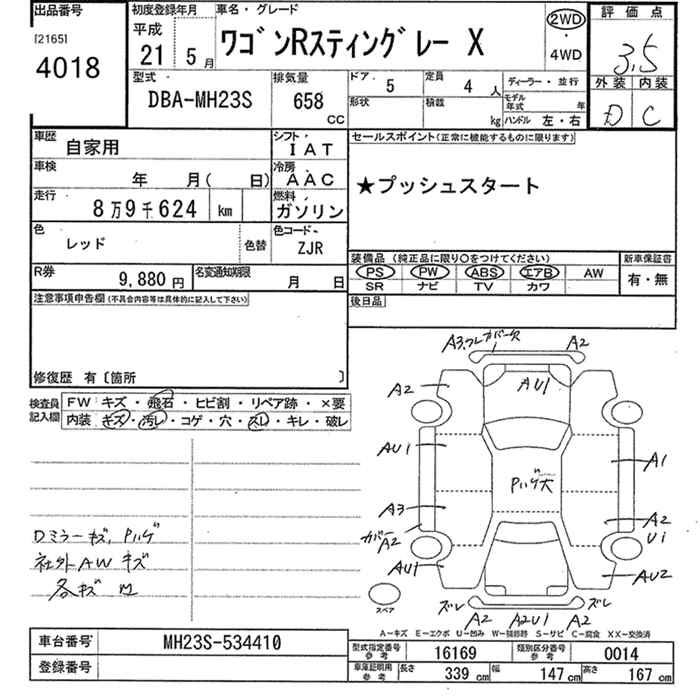 出品番号
[2165]
4018
初度登録年月
平成
21 5月
車名・グレード
ワゴンRスティングレー X
2WD
・
4WD
評価点
3.5
外装 内装
D C
型式
DBA-MH23S
排気量
658
CC
ドア 5
定員 4人
形状
積載 kg
ディーラー・並行
モデル年式 年
ハンドル 左・右
車歴
自家用
シフト
IAT
車検
年 月( 日)
冷房
AAC
走行
8万9千624 km
燃料
ガソリン
色
レッド
色替
色コード
ZJR
R券
9,880円
名変通知期限
月 日
セールスポイント(正常に機能するものに限ります)
★プッシュスタート
装備品(純正品に限り○をつけてください)
新車保証書
PS PW ABS エアB AW
SR ナビ TV カワ
有・無
後日品
注意事項申告欄(不具合内容等は具体的に記入して下さい)
修復歴 有〔箇所 〕
検査員記入欄
FW キズ・飛石・ヒビ割・リペア跡・×要
内装 キズ・汚レ・コゲ・穴・スレ・キレ・破レ
Dミラーキズ、Pハゲ
社外AWキズ
各キズ凹
A3,ワレ カバー欠
A2
A2
AU1
AU1
A1
Pハゲ大
A3
A2
カバーA2
U1
AU1
AU2
スペア
ズレ
ズレ
A2 A2U1 A2
A-キズ E-エクボ U-凹み W-補修跡 S-サビ C-腐食 XX-交換済
車台番号
MH23S-534410
登録番号
型式指定番号参考
16169
類別区分番号参考
0014
車庫証明用参考
長さ 339 cm
幅 147 cm
高さ 167 cm